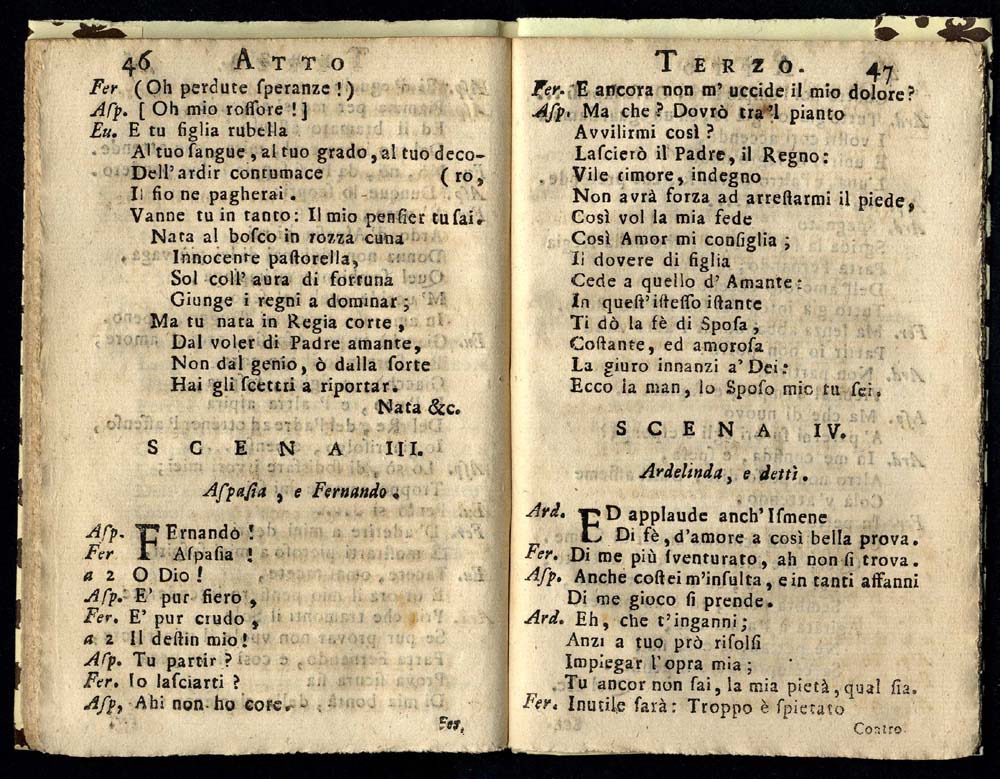 46 ATTO
Fer (Oh perdute ſperanze!)
Aſp. [Oh mio roſſore!]
Eu. E tu figlia rubella
Al tuo ſangue, al tuo grado, al tuo deco-
Dell' ardir contumace (ro,
Il fio ne pagherai.
Vanne tu in tanto: Il mio penſier tu ſai.
Nata al boſco in rozza cuna
Innocente paſtorella,
Sol coll' aura di fortuna
Giunge i regni a dominar;
Ma tu nata in Regia corte,
Dal voler di Padre amante,
Non dal genio, ò dalla ſorte
Hai gli ſcettri a riportar.
Nata &c.
SCENA III.
Aſpaſia, e Fernando.
Aſp. FErnando!
Fer Aſpaſia!
a 2 O Dio!
Aſp. E' pur fiero,
Fer. E' pur crudo,
a 2 Il deſtin mio!
Aſp. Tu partir?
Fer. Io laſciarti?
Aſp, Ahi non ho core.
Fer.
TERZO. 47
Fer. E ancora non m' uccide il mio dolore?
Aſp. Ma che? Dovrò tra 'l pianto
Avvilirmi così?
Laſcierò il Padre, il Regno:
Vile timore, indegno
Non avrà forza ad arreſtarmi il piede,
Così vol la mia fede
Così Amor mi conſiglia;
Il dovere di figlia
Cede a quello d' Amante:
In queſt' iſteſſo iſtante
Ti dò la fè di Spoſa,
Coſtante, ed amoroſa
La giuro innanzi a' Dei:
Ecco la man, lo Spoſo mio tu ſei.
SCENA IV.
Ardelinda, e detti.
Ard. ED applaude anch' Iſmene
Di fè, d'amore a così bella prova.
Fer. Di me più ſventurato, ah non ſi trova.
Aſp. Anche coſtei m'inſulta, e in tanti affanni
Di me gioco ſi prende.
Ard. Eh, che t'inganni;
Anzi a tuo prò riſolſi
Impiegar l'opra mia;
Tu ancor non ſai, la mia pietà, qual ſia.
Fer. Inutile ſarà: Troppo è ſpietato
Contro